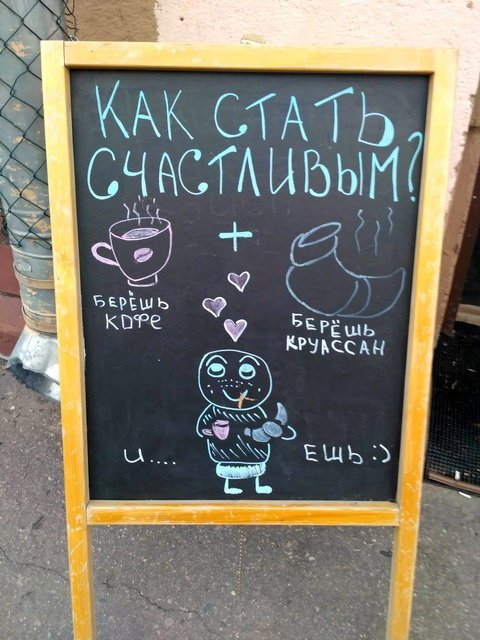 КАК СТАТЬ
СЧАСТЛИВЫМ?
+
БЕРЁШЬ
КОФЕ
БЕРЁШЬ
КРУАССАН
И.... ЕШЬ :)